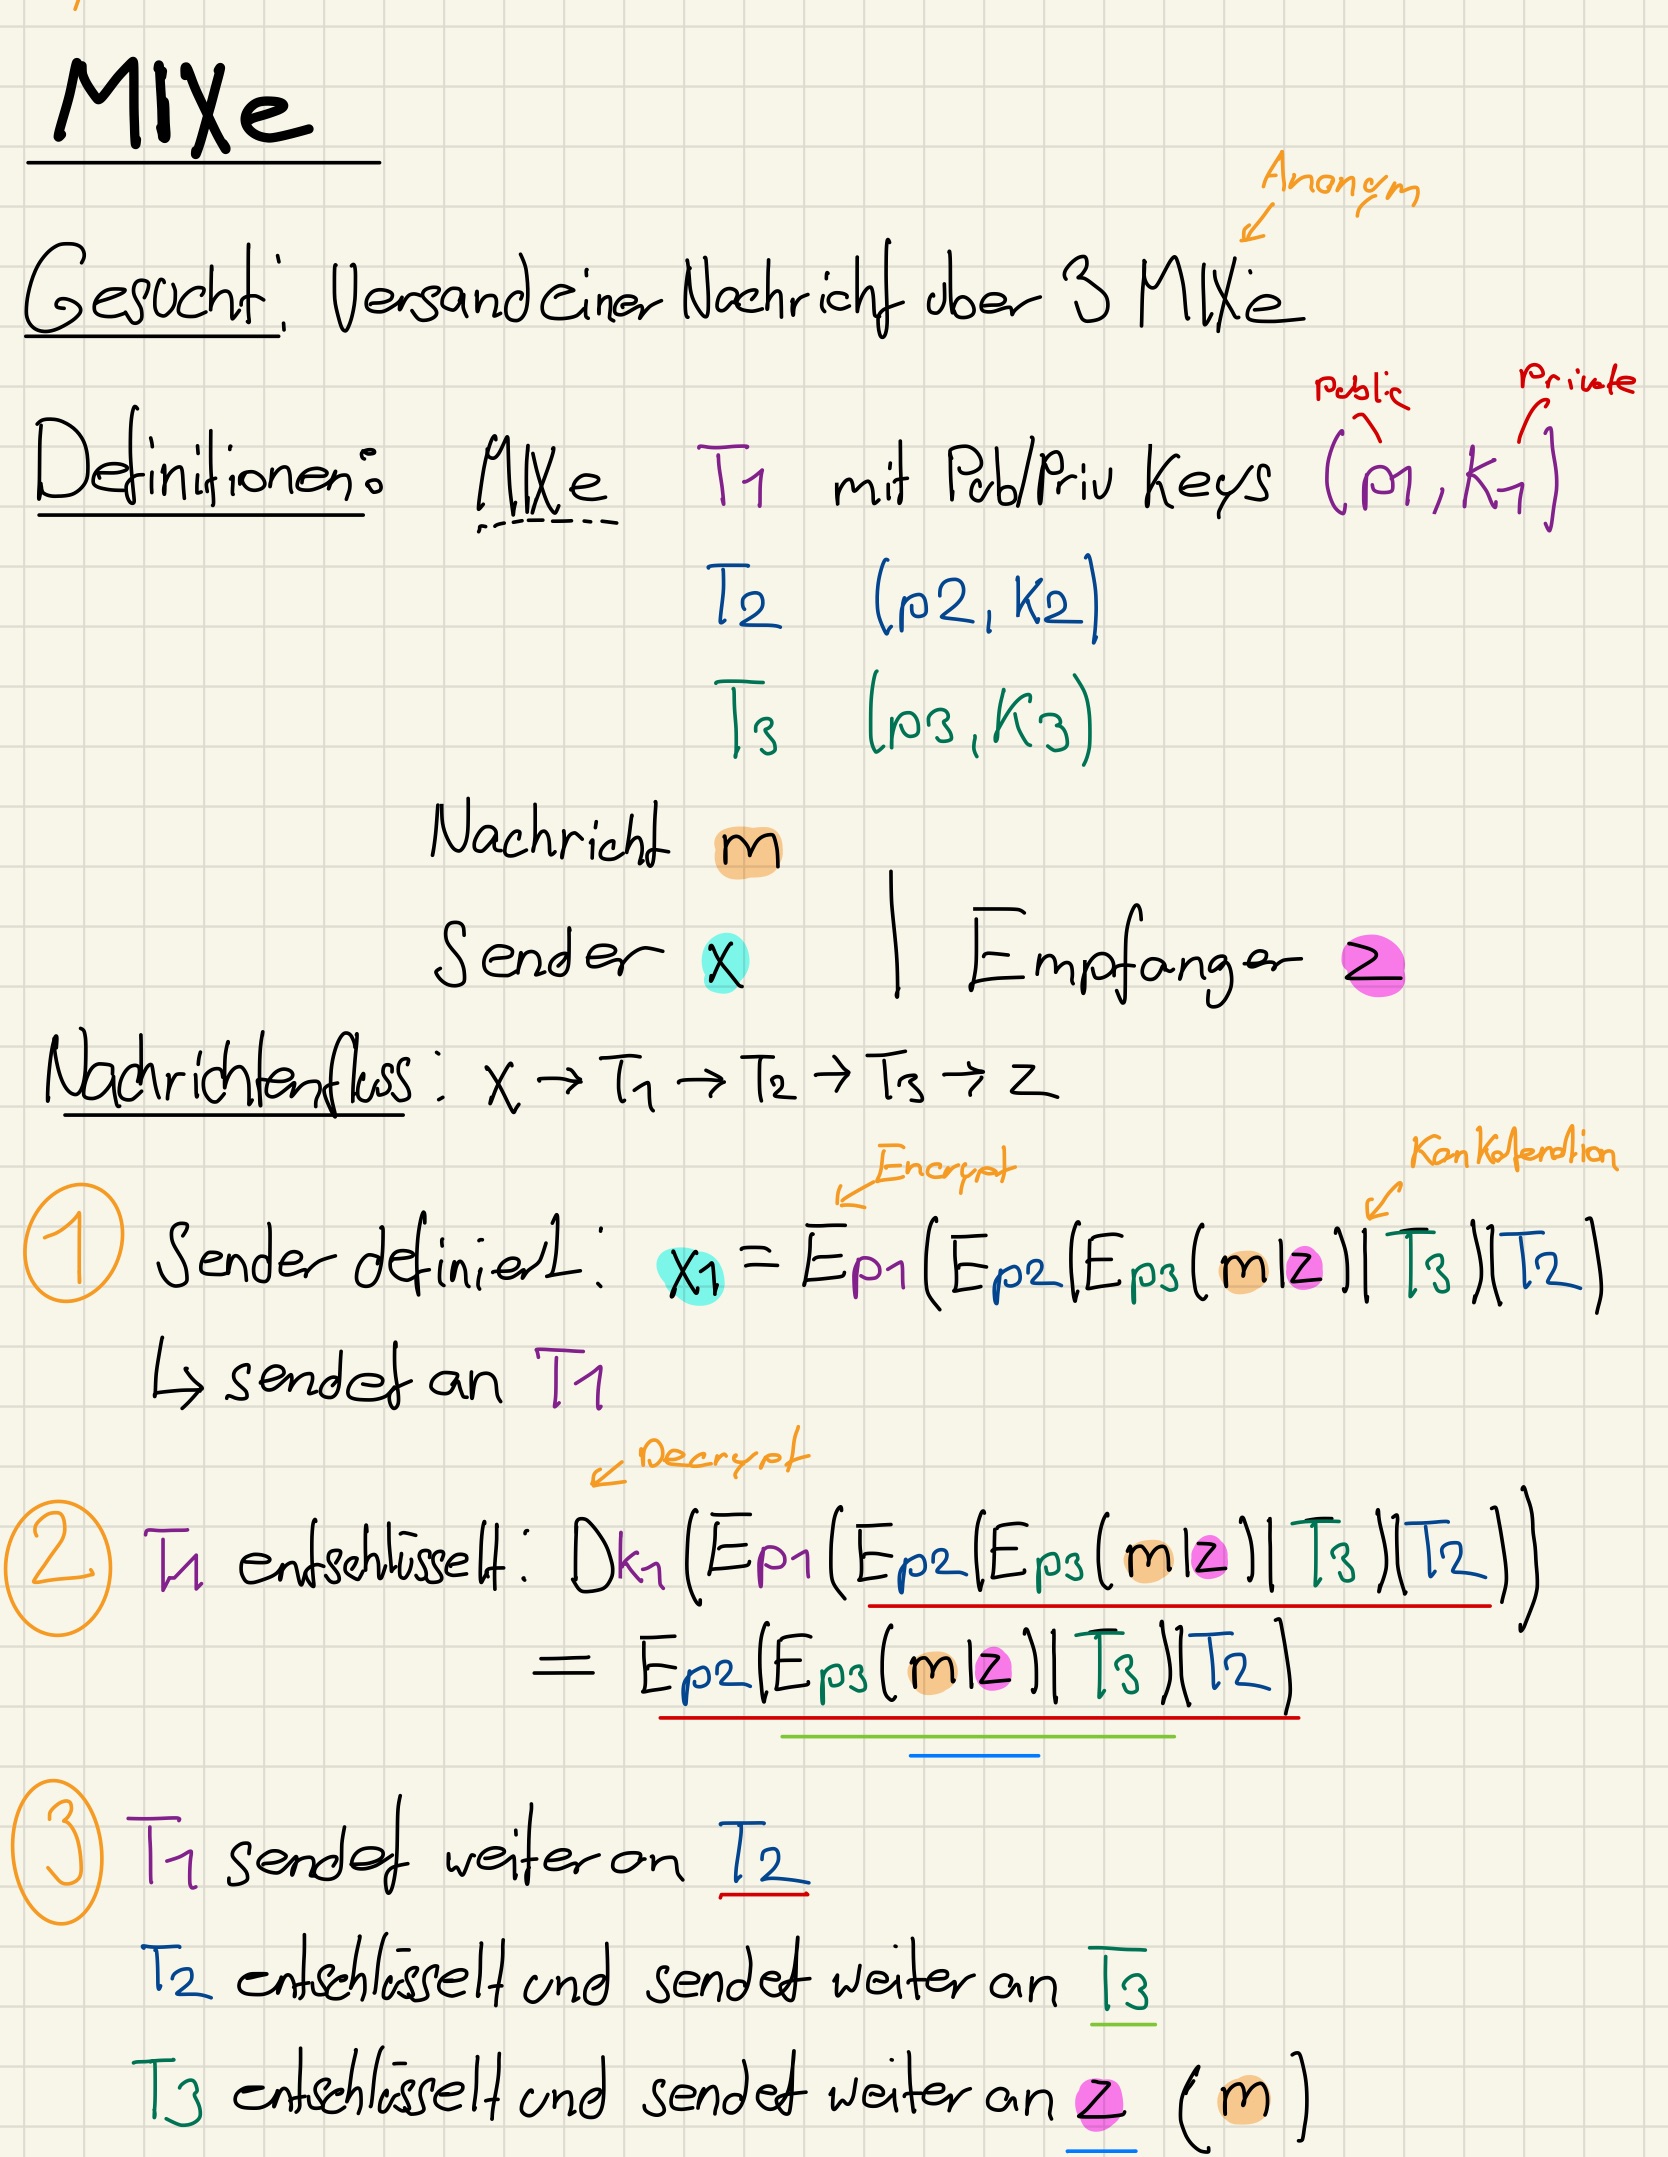 MIXe
Anonym
Gesucht: Versand einer Nachricht über 3 MIXe
Public Private
Definitionen: MIXe T1 mit Pub/Priv Keys (p1, K1)
T2 (p2, K2)
T3 (p3, K3)
Nachricht m
Sender x | Empfänger z
Nachrichtenfluss: x → T1 → T2 → T3 → z
Encrypt Konkatenation
1 Sender definiert: x1 = Ep1(Ep2(Ep3(m|z)|T3)|T2)
↳ sendet an T1
Decrypt
2 T1 entschlüsselt: Dk1(Ep1(Ep2(Ep3(m|z)|T3)|T2))
= Ep2(Ep3(m|z)|T3)|T2)
3 T1 sendet weiter an T2
T2 entschlüsselt und sendet weiter an T3
T3 entschlüsselt und sendet weiter an z (m)